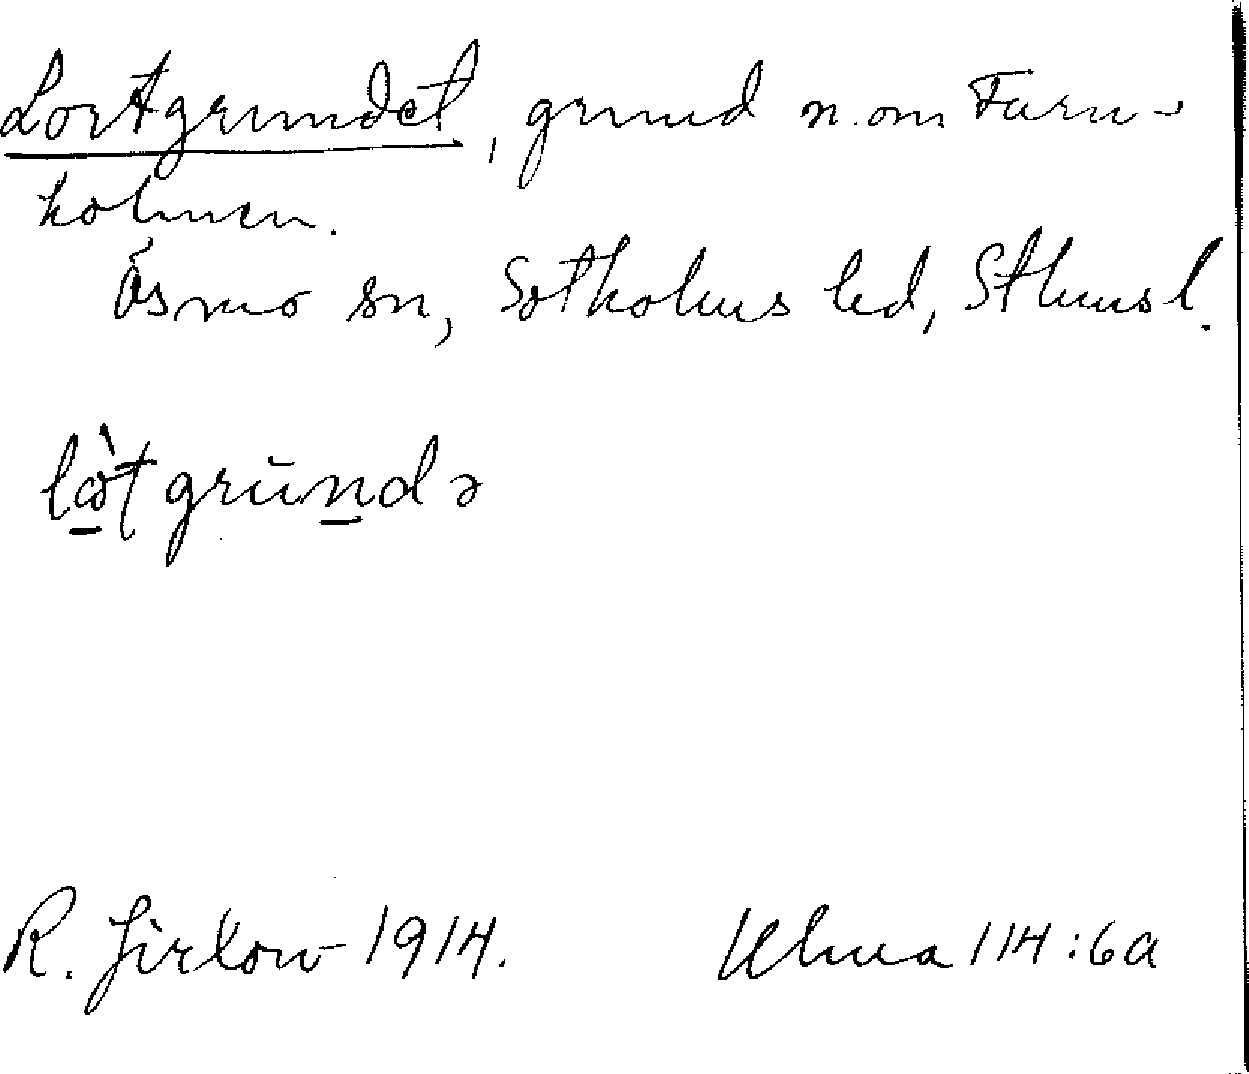 Lortgrundet, grund n. om Furu-
holmen.
Ösmo sn, Sotholms hd, Sthmsl.
lò̲tgrūn̲də
R. Jirlow 1914. Ulma 114:6a